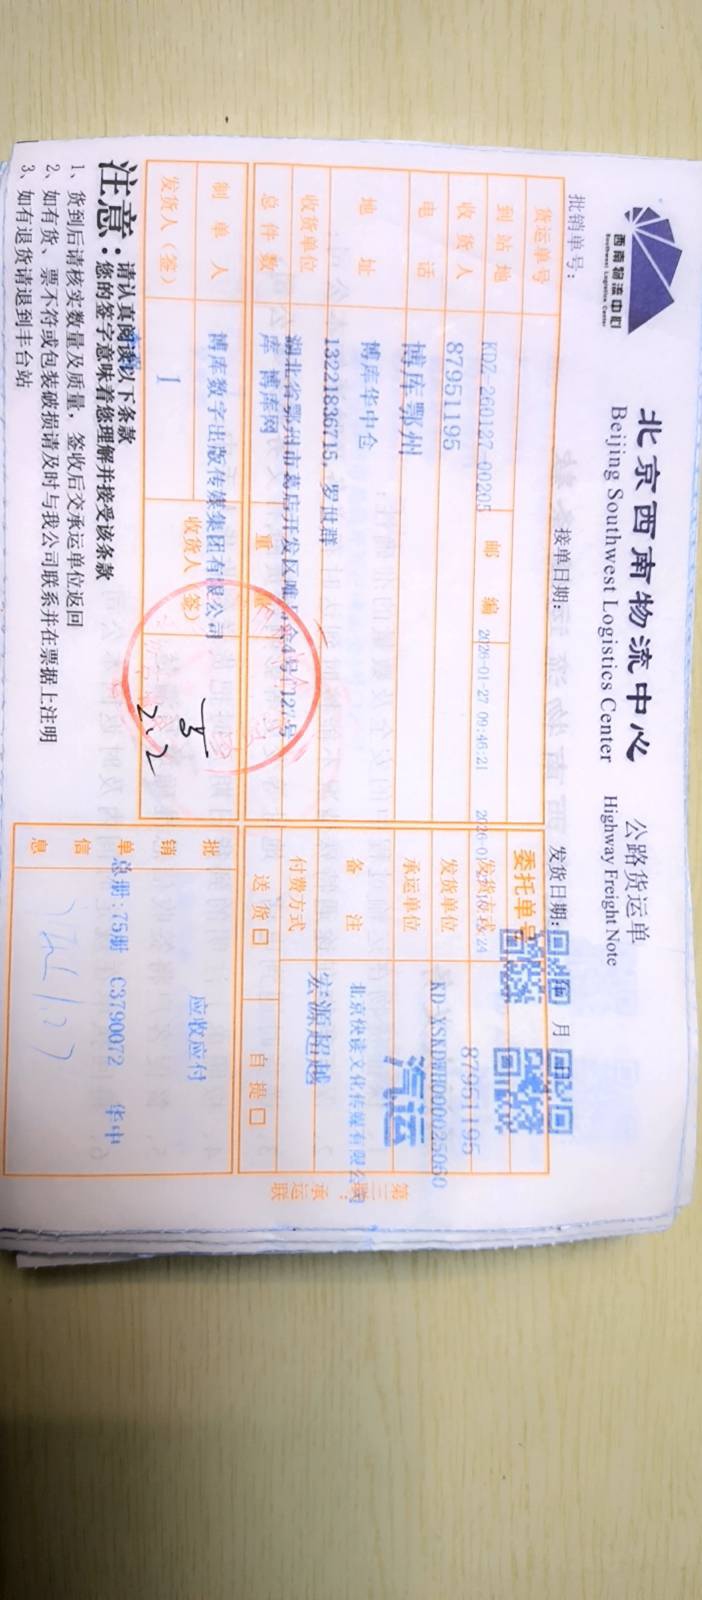 西南物流中心
Southwest Logistics Center
北京西南物流中心
Beijing Southwest Logistics Center
公路货运单
Highway Freight Note
批销单号:
接单日期:
发货日期:
月
货运单号
委托单号
到站地
KDZ-260127-00205
邮编
2026-01-27 09:46:21
发货方式
收货人
87951195
发货单位
87951195
电话
博库鄂州
承运单位
KD-YSKDWH000025060
汽运
地址
博库华中仓
备注
北京快读文化传媒有限公司
收货单位
13221836715, 罗世群
付费方式
宏源超越
总件数
湖北省鄂州市葛店开发区唯品会4号库12号
库 博库网
重
送货
自提
制单人
博库数字出版传媒集团有限公司
收货人(签)
发货人(签)
1
2.2
批销单信息
应收应付
总册:75册 C3790072 华中
第三联:承运联
注意:
请认真阅读以下条款
您的签字意味着您理解并接受该条款
1、货到后请核实数量及质量,签收后交承运单位返回
2、如有货、票不符或包装破损请及时与我公司联系并在票据上注明
3、如有退货请退到丰台站